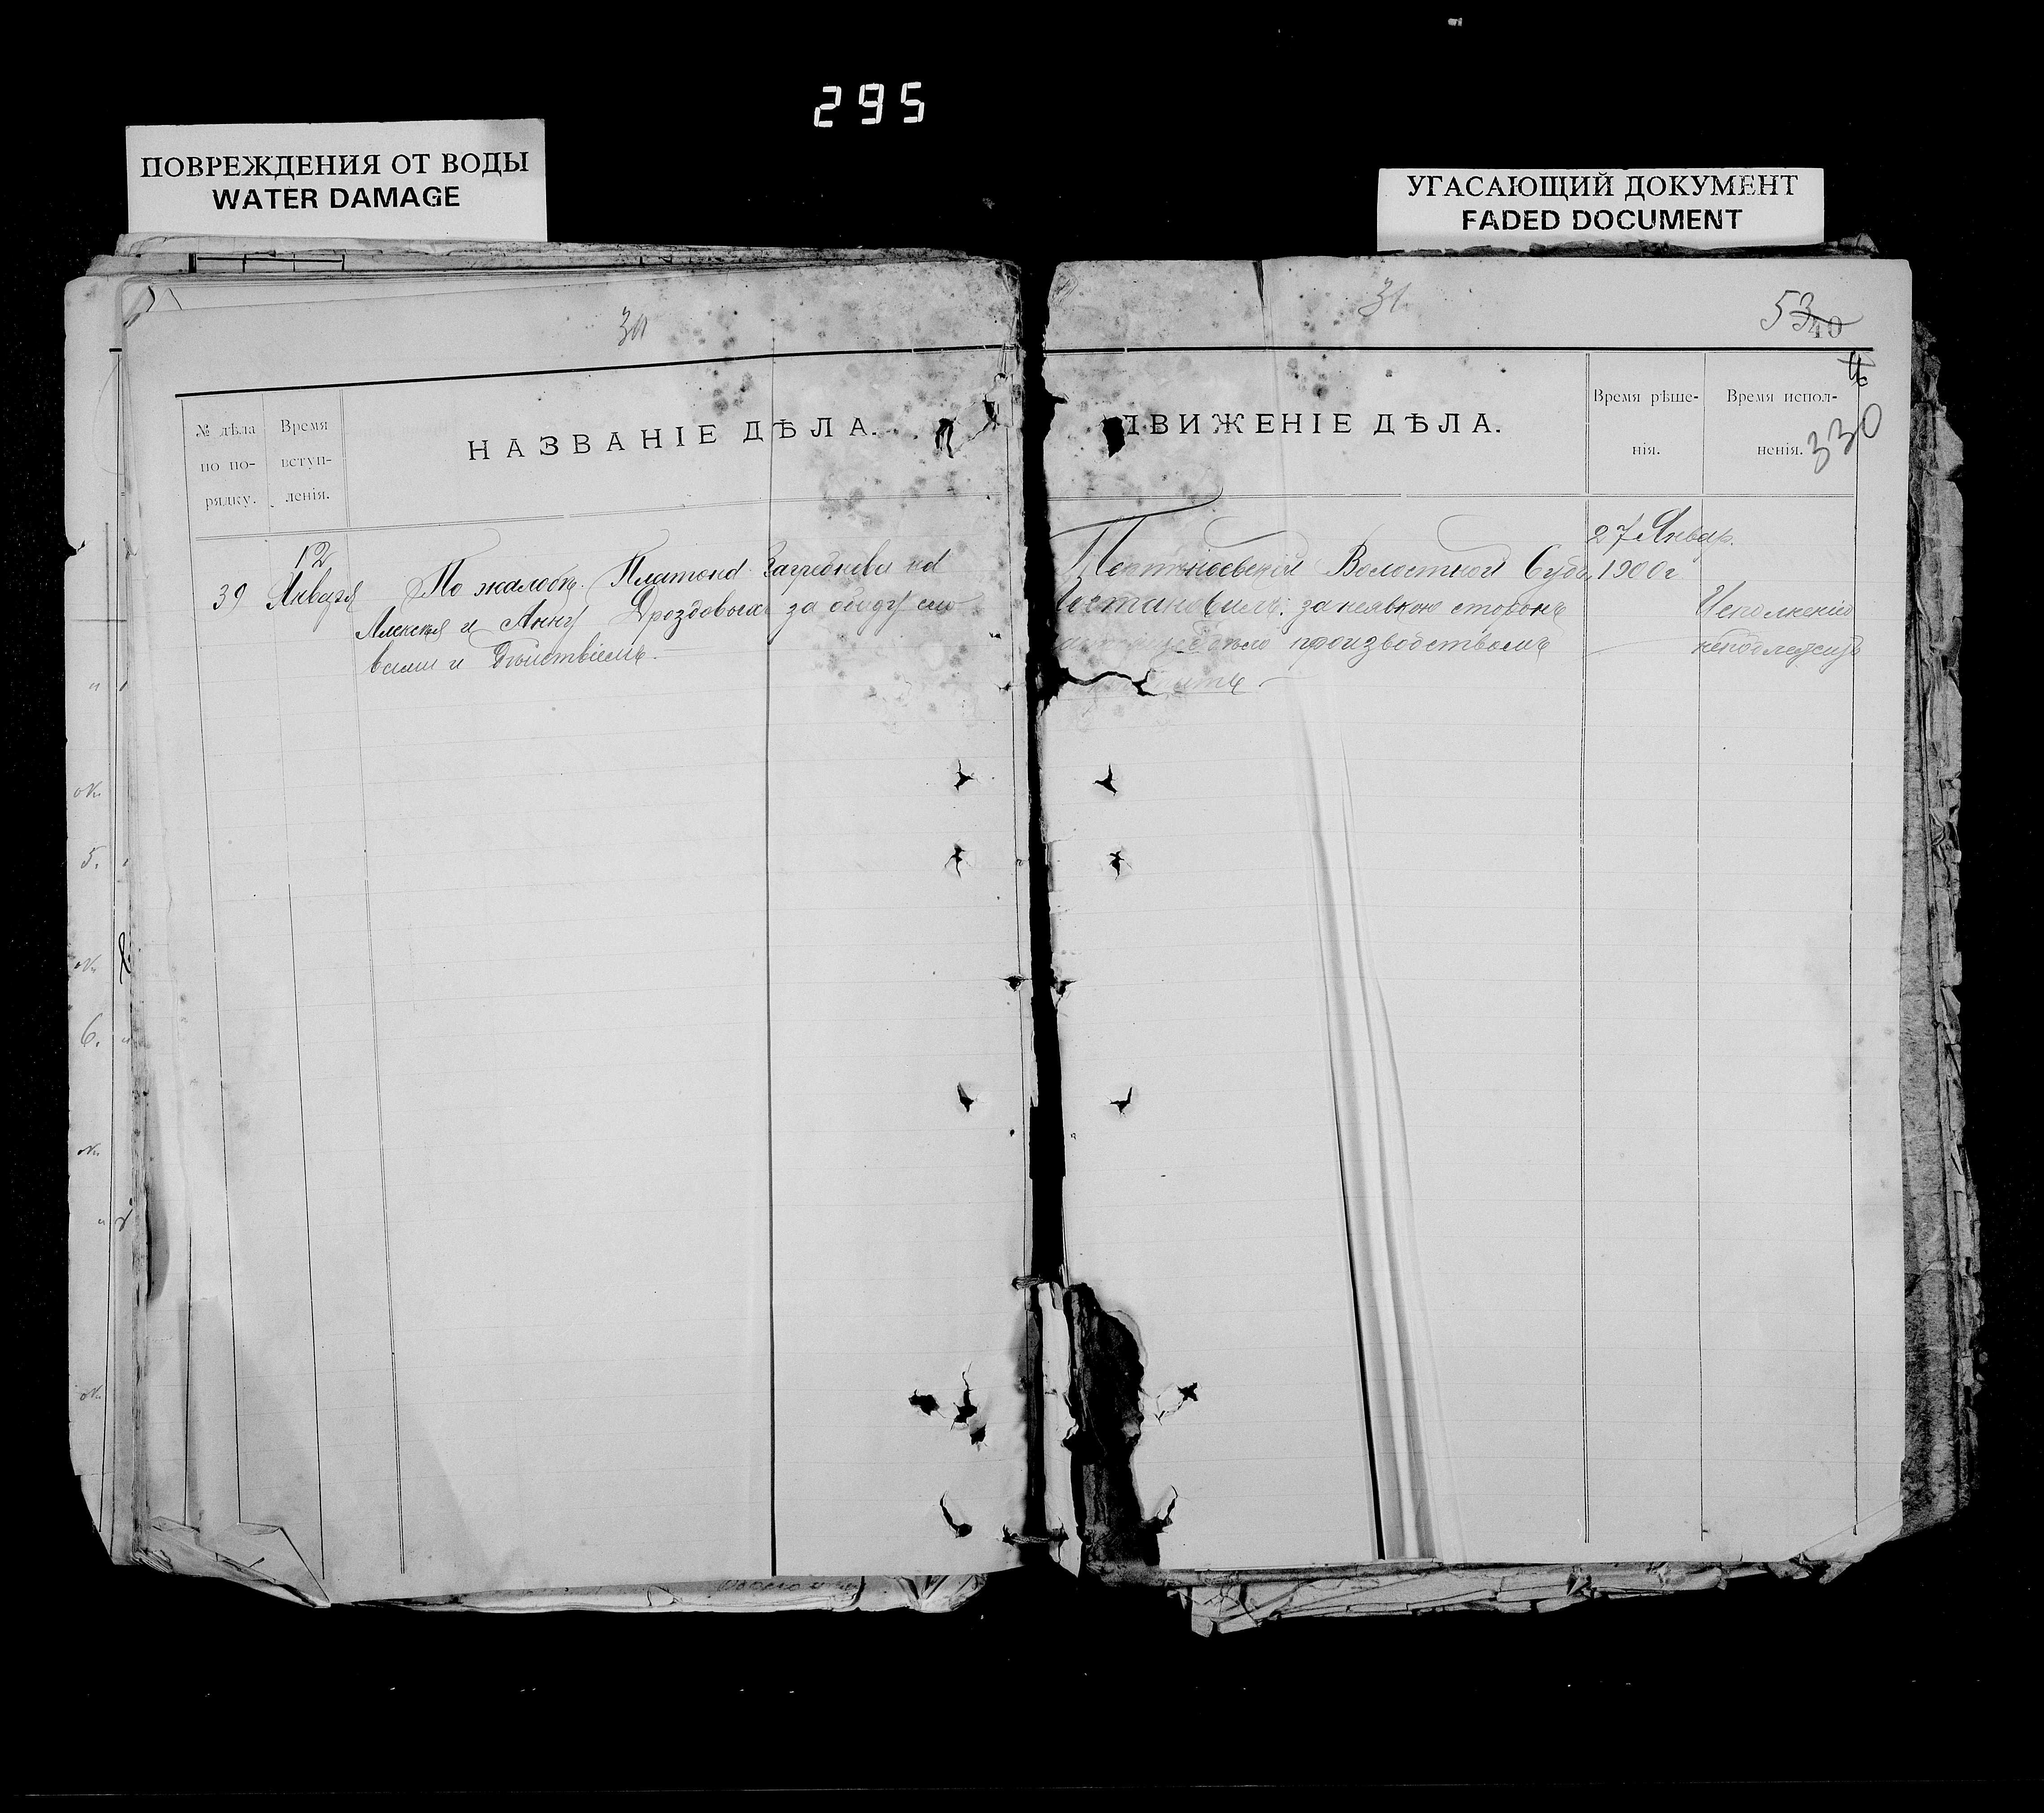 295
ПОВРЕЖДЕНИЯ ОТ ВОДЫ
WATER DAMAGE
УГАСАЮЩИЙ ДОКУМЕНТ
FADED DOCUMENT
30
№ дѣла
по по-
рядку.
Время
вступ-
ленія.
НАЗВАНІЕ ДѢЛА.
39
12
Января
По жалобѣ Платона на
Алексѣя и Анну Дроздовыхъ за обиду сло-
вами и дѣйствіемъ.
31.
53
40
330
ДВИЖЕНІЕ ДѢЛА.
Время рѣше-
нія.
Время испол-
ненія.
Волостной Судъ
за неявкою сторонъ
дѣло производствомъ
27 Январ.
1900 г
Исполненію
неподлежитъ